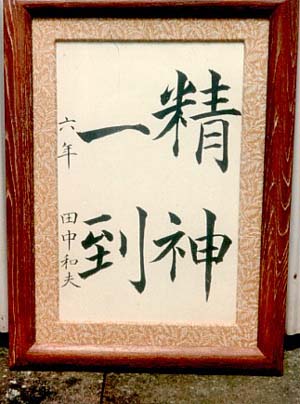 精神
一到
六年 田中和夫